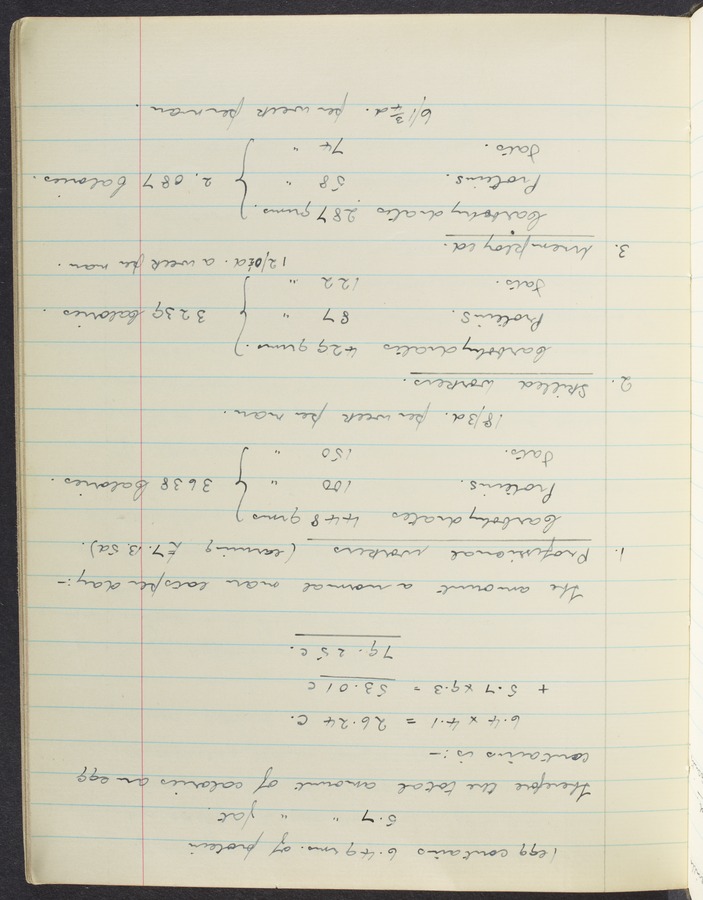 1 egg contains 6.4 gms. of protein
5.7 " " fat.
Therefore the total amount of calories an egg
contains is:-
6.4 x 4.1 = 26.24 C.
+ 5.7 x 9.3 = 53.01 C
79.25 C.
The amount a normal man eats per day:-
1. Professional workers (earning £7.13.5d).
Carbohydrates 448 gms
Proteins. 100 " } 3638 Calories.
Fats. 150 "
18/3d. per week per man.
2. Skilled workers.
Carbohydrates 429 gms.
Proteins. 87 " } 3239 Calories.
Fats. 122 "
12/0½d. a week per man.
3. Unemployed.
Carbohydrates 287 gms.
Proteins. 58 " } 2,087 Calories.
Fats. 74 "
6/1¾d. per week per man.